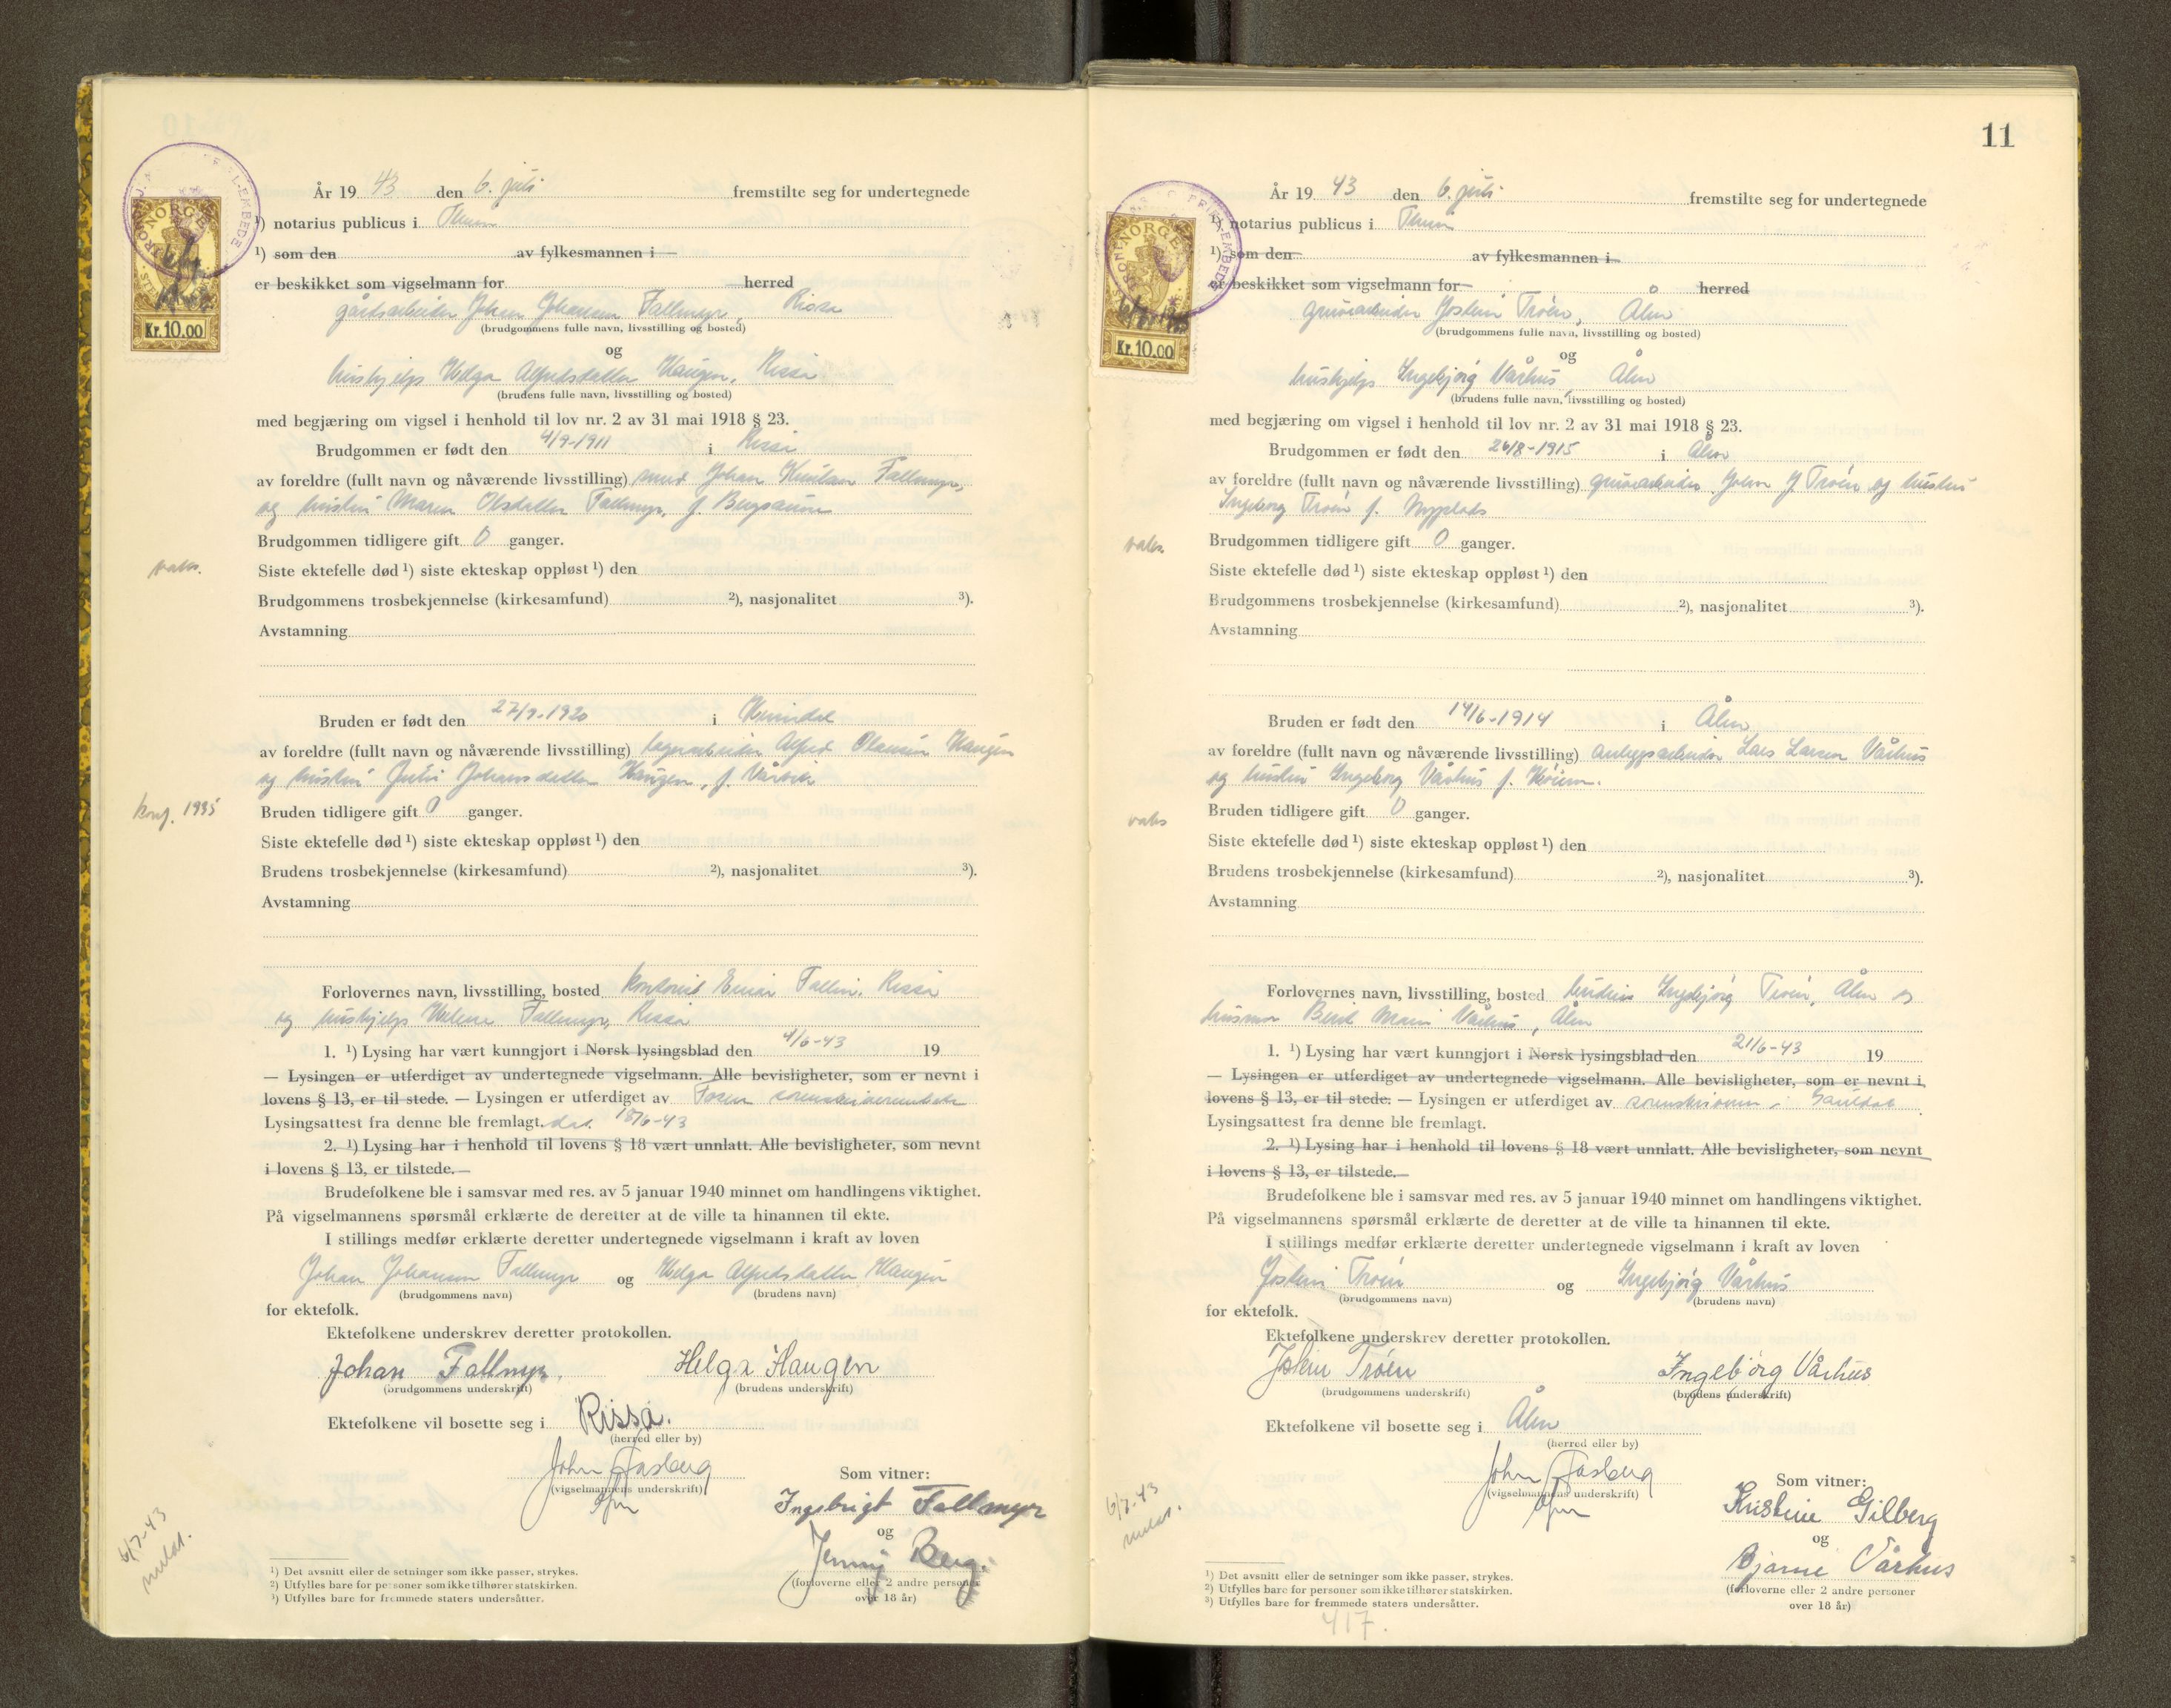 År 19 43 den 6. juli fremstilte seg for undertegnede
¹) notarius publicus i
¹) som den av fylkesmannen i
er beskikket som vigselmann for herred
gårdsarbeider Johan Johansen Fallmyr, Rissa
(brudgommens fulle navn, livsstilling og bosted)
og
hushjelp Helga Alfredsdatter Haugen, Rissa
(brudens fulle navn, livsstilling og bosted)
med begjæring om vigsel i henhold til lov nr. 2 av 31 mai 1918 § 23.
Brudgommen er født den 4/9-1911 i Rissa
av foreldre (fullt navn og nåværende livsstilling) Johan Fallmyr,
og hustru Maren Olsdatter Fallmyr, f.
Brudgommen tidligere gift 0 ganger.
vaks.
Siste ektefelle død ¹) siste ekteskap oppløst ¹) den
Brudgommens trosbekjennelse (kirkesamfund) ²), nasjonalitet ³).
Avstamning
Bruden er født den 27/9-1920 i
av foreldre (fullt navn og nåværende livsstilling) lagerarbeider Alfred Haugen
og hustru Johansdatter Haugen, f.
konf. 1935
Bruden tidligere gift 0 ganger.
Siste ektefelle død ¹) siste ekteskap oppløst ¹) den
Brudens trosbekjennelse (kirkesamfund) ²), nasjonalitet ³).
Avstamning
Forlovernes navn, livsstilling, bosted Rissa
og hushjelp Helene Fallmyr, Rissa
1. ¹) Lysing har vært kunngjort i Norsk lysingsblad den 4/6-43 19
— Lysingen er utferdiget av undertegnede vigselmann. Alle bevisligheter, som er nevnt i
lovens § 13, er til stede. — Lysingen er utferdiget av Fosen sorenskriverembete
Lysingsattest fra denne ble fremlagt. dat. 18/6-43
2. ¹) Lysing har i henhold til lovens § 18 vært unnlatt. Alle bevisligheter, som nevnt
i lovens § 13, er tilstede.—
Brudefolkene ble i samsvar med res. av 5 januar 1940 minnet om handlingens viktighet.
På vigselmannens spørsmål erklærte de deretter at de ville ta hinannen til ekte.
I stillings medfør erklærte deretter undertegnede vigselmann i kraft av loven
Johan Johansen Fallmyr og Helga Alfredsdatter Haugen
(brudgommens navn) (brudens navn)
for ektefolk.
Ektefolkene underskrev deretter protokollen.
Johan Fallmyr. Helga Haugen
(brudgommens underskrift) (brudens underskrift)
Ektefolkene vil bosette seg i Rissa.
(herred eller by)
John Aasberg
(vigselmannens underskrift)
Som vitner:
Ingebrigt Fallmyr
og
Jenny Berg.
(forloverne eller 2 andre personer
over 18 år)
6/7-43
meldt.
¹) Det avsnitt eller de setninger som ikke passer, strykes.
²) Utfylles bare for personer som ikke tilhører statskirken.
³) Utfylles bare for fremmede staters undersåtter.
NORGE
Kr. 10.00
11
År 19 43 den 6. juli fremstilte seg for undertegnede
¹) notarius publicus i
¹) som den av fylkesmannen i
er beskikket som vigselmann for herred
gruvearbeider Jostein Trøen, Ålen
(brudgommens fulle navn, livsstilling og bosted)
og
hushjelp Ingebjørg Vårhus, Ålen
(brudens fulle navn, livsstilling og bosted)
med begjæring om vigsel i henhold til lov nr. 2 av 31 mai 1918 § 23.
Brudgommen er født den 26/8-1915 i Ålen
av foreldre (fullt navn og nåværende livsstilling) gruvearbeider John J Trøen og hustru
Ingeborg Trøen f. Nyplads
Brudgommen tidligere gift 0 ganger.
vaks.
Siste ektefelle død ¹) siste ekteskap oppløst ¹) den
Brudgommens trosbekjennelse (kirkesamfund) ²), nasjonalitet ³).
Avstamning
Bruden er født den 14/6-1914 i Ålen
av foreldre (fullt navn og nåværende livsstilling) anleggsarbeider Lars Larsen Vårhus
og hustru Ingeborg Vårhus f.
Bruden tidligere gift 0 ganger.
vaks
Siste ektefelle død ¹) siste ekteskap oppløst ¹) den
Brudens trosbekjennelse (kirkesamfund) ²), nasjonalitet ³).
Avstamning
Forlovernes navn, livsstilling, bosted Ingebjørg Trøen, Ålen og
husmor Berit Marie Vårhus, Ålen
1. ¹) Lysing har vært kunngjort i Norsk lysingsblad den 21/6-43 19
— Lysingen er utferdiget av undertegnede vigselmann. Alle bevisligheter, som er nevnt i
lovens § 13, er til stede. — Lysingen er utferdiget av sorenskriveren i Gauldal
Lysingsattest fra denne ble fremlagt.
2. ¹) Lysing har i henhold til lovens § 18 vært unnlatt. Alle bevisligheter, som nevnt
i lovens § 13, er tilstede.—
Brudefolkene ble i samsvar med res. av 5 januar 1940 minnet om handlingens viktighet.
På vigselmannens spørsmål erklærte de deretter at de ville ta hinannen til ekte.
I stillings medfør erklærte deretter undertegnede vigselmann i kraft av loven
Jostein Trøen og Ingebjørg Vårhus
(brudgommens navn) (brudens navn)
for ektefolk.
Ektefolkene underskrev deretter protokollen.
Jostein Trøen Ingebjørg Vårhus
(brudgommens underskrift) (brudens underskrift)
Ektefolkene vil bosette seg i Ålen
(herred eller by)
John Aasberg
(vigselmannens underskrift)
Som vitner:
Kristine Gilberg
og
Bjarne Vårhus
(forloverne eller 2 andre personer
over 18 år)
6/7-43
meldt.
¹) Det avsnitt eller de setninger som ikke passer, strykes.
²) Utfylles bare for personer som ikke tilhører statskirken.
³) Utfylles bare for fremmede staters undersåtter.
417.
NORGE
Kr. 10.00